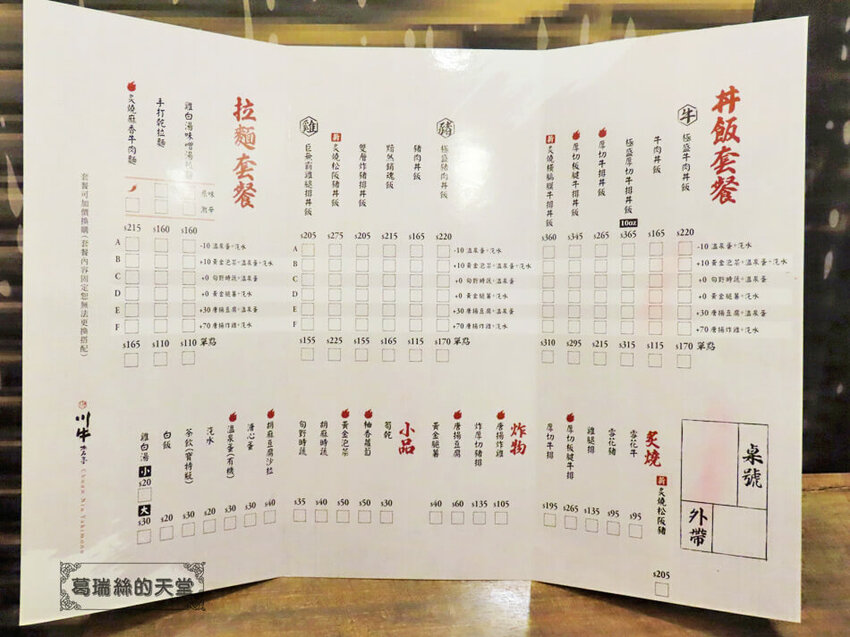 丼飯套餐
牛
極盛牛肉丼飯
$220
牛肉丼飯
$165
極盛厚切牛排丼飯
10oz
$365
厚切牛排丼飯
$265
厚切板腱牛排丼飯
$345
新
$360
-10 溫泉蛋+汽水
+10 黃金泡菜+溫泉蛋+汽水
+0 旬野時蔬+溫泉蛋
+0 黃金脆薯+汽水
+30 唐揚豆腐+溫泉蛋
+70 唐揚炸雞+汽水
A
B
C
D
E
F
$310
$295
$215
$315
$115
$170
單點
豬
極盛豬肉丼飯
$220
豬肉丼飯
$165
黯然銷魂飯
$215
雙層炸豬排丼飯
$205
新
炙燒松阪豬丼飯
$275
雞
巨無霸雞腿排丼飯
$205
-10 溫泉蛋+汽水
+10 黃金泡菜+溫泉蛋+汽水
+0 旬野時蔬+溫泉蛋
+0 黃金脆薯+汽水
+30 唐揚豆腐+溫泉蛋
+70 唐揚炸雞+汽水
A
B
C
D
E
F
$155
$225
$155
$165
$115
$170
單點
拉麵套餐
雞白湯味噌湯拉麵
$160
手打乾拉麵
$160
炙燒麻香牛肉麵
$215
原味
激辛
-10 溫泉蛋+汽水
+10 黃金泡菜+溫泉蛋+汽水
+0 旬野時蔬+溫泉蛋
+0 黃金脆薯+汽水
+30 唐揚豆腐+溫泉蛋
+70 唐揚炸雞+汽水
A
B
C
D
E
F
$165
$110
$110
單點
套餐可加價換購(套餐內容固定恕無法更換搭配)
桌號
外帶
炙燒
新
炙燒松阪豬
$205
雪花牛
$95
雪花豬
$95
雞腿排
$135
厚切板腱牛排
$265
厚切牛排
$195
炸物
唐揚炸雞
$105
炸厚切豬排
$135
唐揚豆腐
$60
黃金脆薯
$40
小品
筍乾
$30
柚香蘿蔔
$50
黃金泡菜
$50
胡麻時蔬
$40
旬野時蔬
$35
胡麻豆腐沙拉
$40
溏心蛋
$30
溫泉蛋(有機)
$30
汽水
$20
茶飲(寶特瓶)
$30
白飯
$20
雞白湯
小
$20
大
$30
川牛
Chuan Niu Yakimono
葛瑞絲的天堂